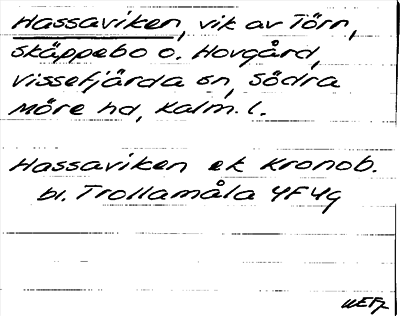 Hassaviken, vik av Törn,
skäppebo o. Hovgård,
Vissefjärda sn, Södra
Möre hd, Kalm. l.
Hassaviken ek Kronob.
bl. Trollamåla 4F4g